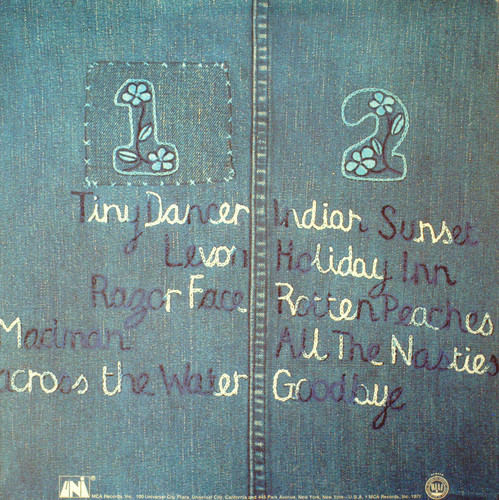 1
Tiny Dancer
Levon
Razor Face
Madman
across the Water
2
Indian Sunset
Holiday Inn
Rotten Peaches
All The Nasties
Goodbye
UNI
MCA Records, Inc., 100 Universal City Plaza, Universal City, California and 445 Park Avenue, New York, New York — U.S.A.